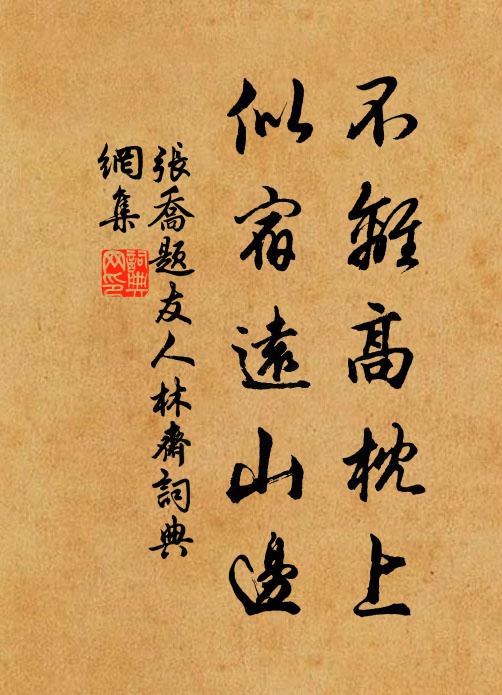 不離高枕上
似宿遠山邊
張喬題友人林齋詞典
網集
詞典
網印